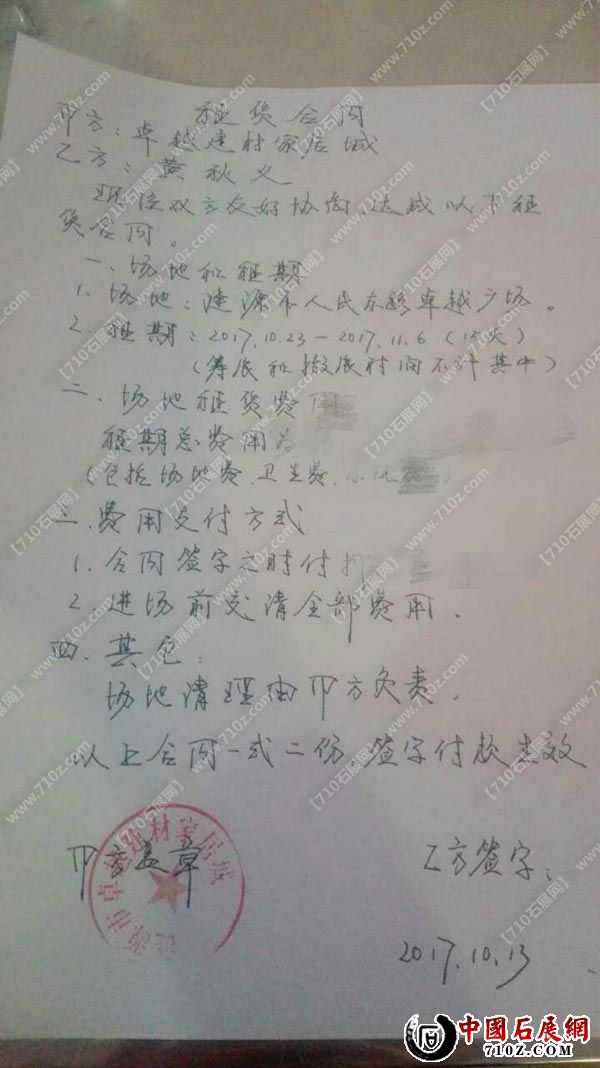 租赁合同
甲方：卓越建材家居城
乙方：黄秋义
现经双方友好协商，达成以下租
赁合同。
一、场地和租期
1、场地：涟源市人民东路卓越广场。
2、租期：2017.10.23－2017.11.6（15天）
（筹展和撤展时间不计其中）
二、场地租赁费用
租期总费用为
（包括场地费、卫生费、
三、费用支付方式
1、合同签字之时付
2、进场前交清全部费用。
四、其它：
场地清理由甲方负责。
以上合同一式二份，签字付款生效
甲方盖章
涟源市卓越建材家居城
乙方签字：
2017.10.13
【710石展网】www.710z.com
中國石展網
710Z.COM